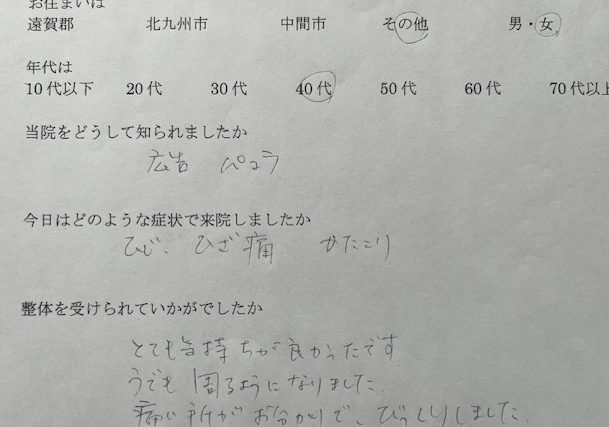 お住まいは
遠賀郡 北九州市 中間市 その他 男・女
年代は
10代以下 20代 30代 40代 50代 60代 70代以上
当院をどうして知られましたか
広告 ぺコラ
今日はどのような症状で来院しましたか
ひじ、ひざ痛 かたこり
整体を受けられていかがでしたか
とても気持ちが良かったです
うでも周るようになりました
痛い所がお分かりで、びっくりしました